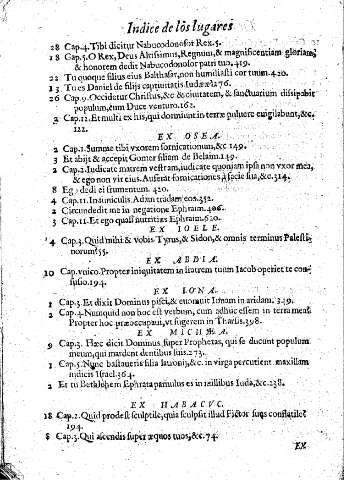 Indice de los lugares
28 Cap.4. Tibi dicitur Nabucodonosor Rex.5.
18 Cap.5. O Rex, Deus Altissimus, Regnum, & magnificentiam gloriam,
& honorem dedit Nabucodonosor patri tuo.419.
22 Tu quoque filius eius Balthasar, non humiliasti cor tuum.420.
13 Tu es Daniel de filijs captiuitatis Iudææ?
26 Cap.9. Occidetur Christus, &c & ciuitatem, & sanctuarium dissipabit
populum, cum Duce venturo.162.
2 Cap.12. Et multi ex his, qui dormiunt in terræ puluere euigilabunt, &c.
122.
EX OSEA.
2 Cap.1. Summe tibi vxorem fornicationum, &c.149.
3 Et abijt & accepit Gomer filiam de Belaim.149.
2 Cap.2. Iudicate matrem vestram, iudicate quoniam ipsa non vxor mea,
& ego non vir eius. Auferat fornicationes à facie sua, &c.314.
8 Ego dedi ei frumentum. 420.
4 Cap.11. In funiculis Adam tradam eos.352.
2 Circundedit me in negatione Ephraim.406.
3 Cap.11. Et ego quasi nutritius Ephraim.620.
EX IOELE.
4 Cap.3. Quid mihi & vobis Tyrus, & Sidon, & omnis terminus Palesti-
norum?55.
EX ABDIA.
10 Cap.vnico. Propter iniquitatem in fratrem tuum Iacob operiet te con-
fusio.194.
EX IONA.
1 Cap.3. Et dixit Dominus pisci, & euomuit Ionam in aridam. 349.
2 Cap.4. Numquid non hoc est verbum, cum adhuc essem in terra mea?
Propter hoc præoccupaui, vt fugerem in Tharsis.398.
EX MICHÆA.
9 Cap.3. Hæc dicit Dominus super Prophetas, qui seducunt populum
meum, qui mordent dentibus suis.273.
1 Cap.5. Nunc bastaueris filia latronis, &c. in virga percutient maxillam
iudicis Israel.364.
2 Et tu Bethlehem Ephrata paruulus es in millibus Iuda, &c.238.
EX HABACVC.
18 Cap.2. Quid prodest sculptile, quia sculpsit illud Fictor suus conflatile?
194.
8 Cap.3. Qui ascendis super equos tuos, &c.74.
EX